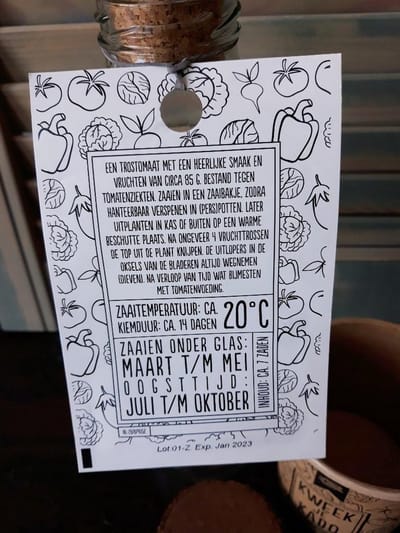 EEN TROSTOMAAT MET EEN HEERLIJKE SMAAK EN
VRUCHTEN VAN CIRCA 85 G. BESTAND TEGEN
TOMATENZIEKTEN. ZAAIEN IN EEN ZAAIBAKJE, ZODRA
HANTEERBAAR VERSPENEN IN (PERS)POTTEN. LATER
UITPLANTEN IN KAS OF BUITEN OP EEN WARME
BESCHUTTE PLAATS. NA ONGEVEER 4 VRUCHTTROSSEN
DE TOP UIT DE PLANT KNIJPEN. DE UITLOPERS IN DE
OKSELS VAN DE BLADEREN ALTIJD WEGNEMEN
(DIEVEN). NA VERLOOP VAN TIJD WAT BIJMESTEN
MET TOMATENVOEDING.
ZAAITEMPERATUUR: CA. 20°C
KIEMDUUR: CA. 14 DAGEN
ZAAIEN ONDER GLAS:
MAART T/M MEI
OOGSTTIJD:
JULI T/M OKTOBER
INHOUD: CA. 7 ZADEN
Lot.01-Z Exp. Jan 2023
KWEEK
KADO